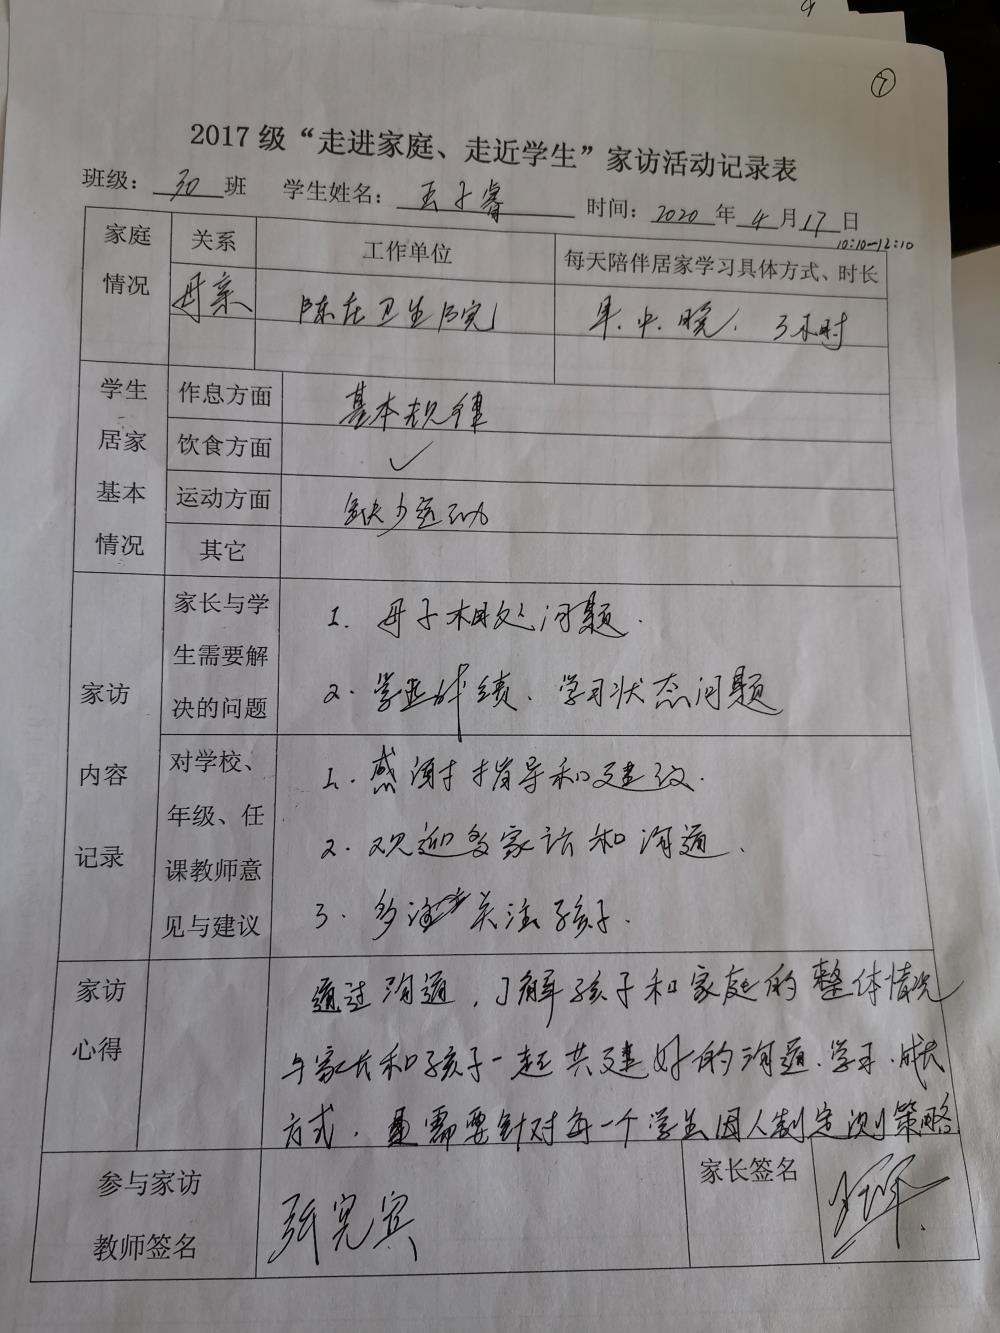 ⑦
2017 级“走进家庭、走近学生”家访活动记录表
班级: 30 班 学生姓名: 王子睿 时间: 2020 年 4 月 17 日
10:10-12:10
家庭情况 关系 工作单位 每天陪伴居家学习具体方式、时长
母亲 陈在卫生院 早.中.晚. 3小时
学生居家基本情况 作息方面 基本规律
饮食方面 ✓
运动方面 缺少运动
其它
家访内容记录
家长与学生需要解决的问题
1. 母子相处问题.
2. 学业成绩、学习状态问题
对学校、年级、任课教师意见与建议
1. 感谢指导和建议.
2. 欢迎多家访和沟通.
3. 多 关注孩子.
家访心得
通过沟通,了解孩子和家庭的整体情况
与家长和孩子一起共建好的沟通.学习.成长
方式. 需要针对每一个学生因人制定 策略
参与家访教师签名 张宪宾 家长签名